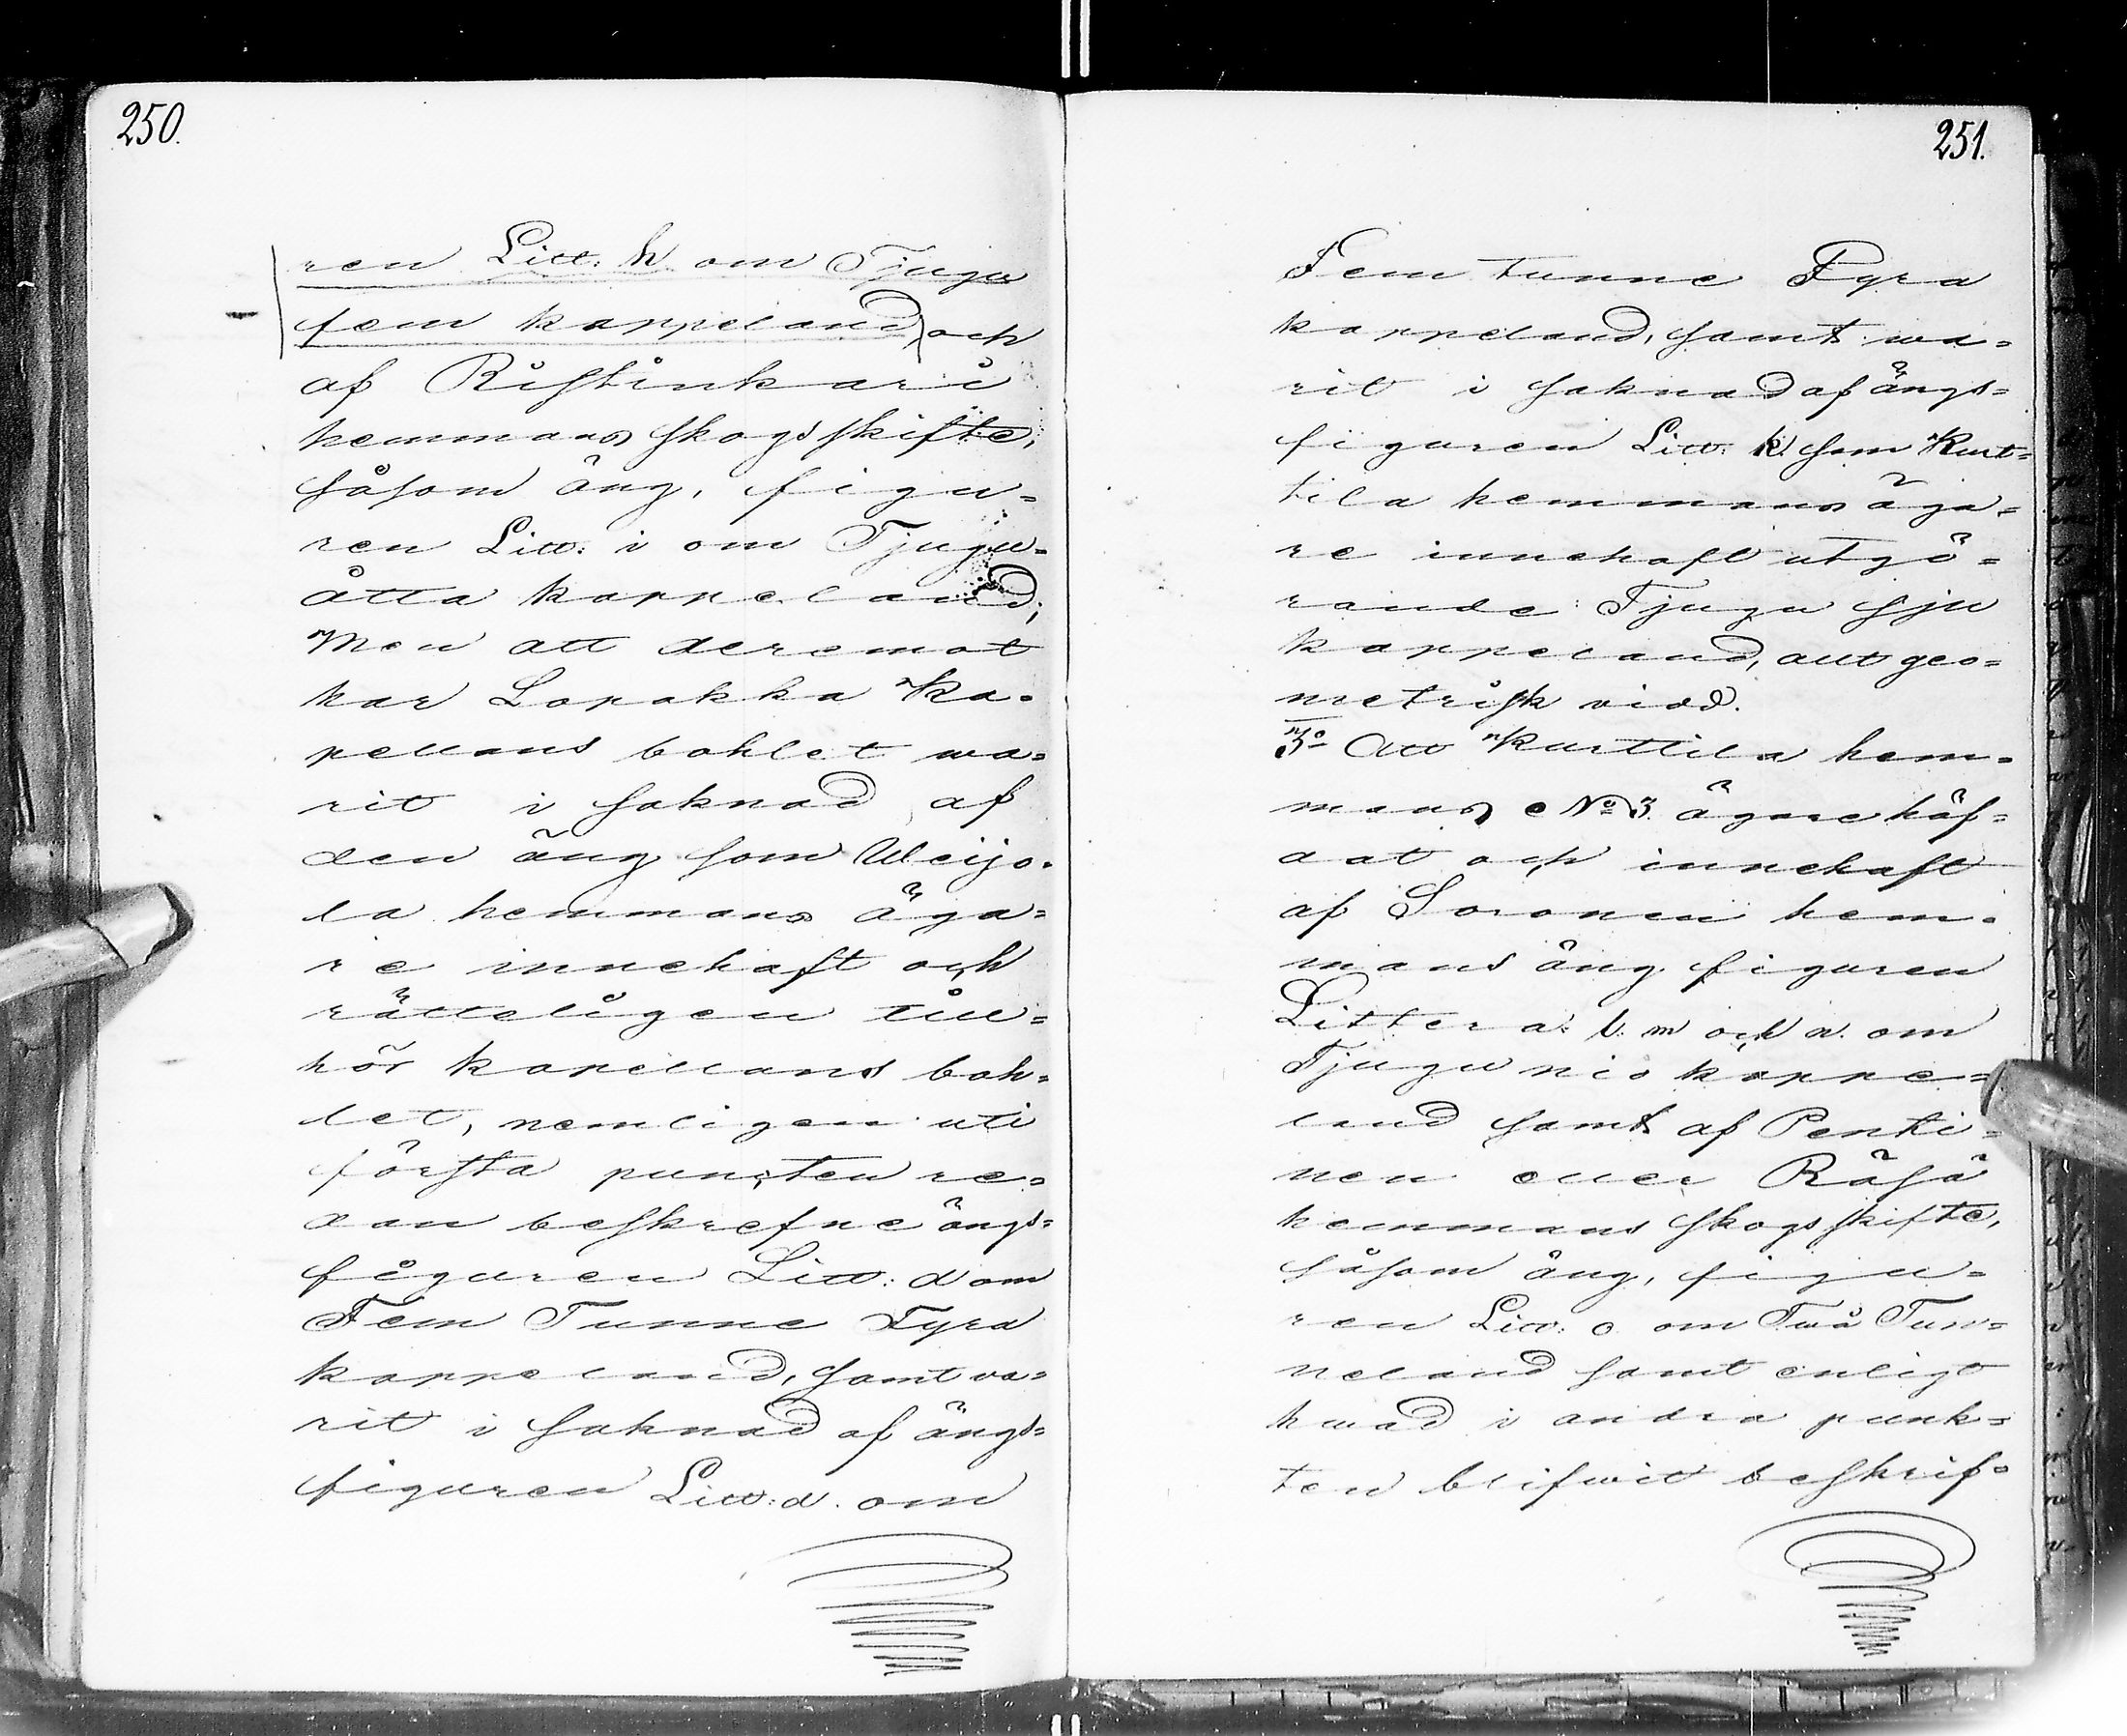 250.
ren Litt: h om Tjugu
fem kappeland och
af Ristinkari
hemmans skogsskifte,
såsom äng, figu=
ren Litt: i om Tjugu=
åtta kappeland;
Men att deremot
har Lopakka Ka=
pellans bohlet wa=
rit i saknad af
den äng som Weijo=
la hemmans äga=
re innehaft och
rätteligen till=
hör kapellans boh=
let, nemligen uti
första puncten re=
dan beskrefne ängs=
figuren Litt: d om
Fem Tunne Fyra
kappeland, samt va=
rit i saknad af ängs=
figuren Litt: d. om
251.
Fem tunne Fyra
kappeland, samt wa=
rit i saknad af ängs=
figuren Litt: k. som Kurt=
tila hemmans äga=
re innehaft utgö=
rande Tjugu sju
kappeland, allt geo=
metrisk vidd.
3o Att Kurttila hem=
mans No 3 ägare häf=
dat och innehaft
af Soronen hem=
mans äng figuren
Littera: l. m och n. om
Tjugu nio kappe=
land samt af Penti=
nen eller Räsä
hemmans skogsskifte,
såsom äng, figu=
ren Litt: o om Två Tun=
neland samt enligt
hwad i andra punk=
ten blifwit beskrif=